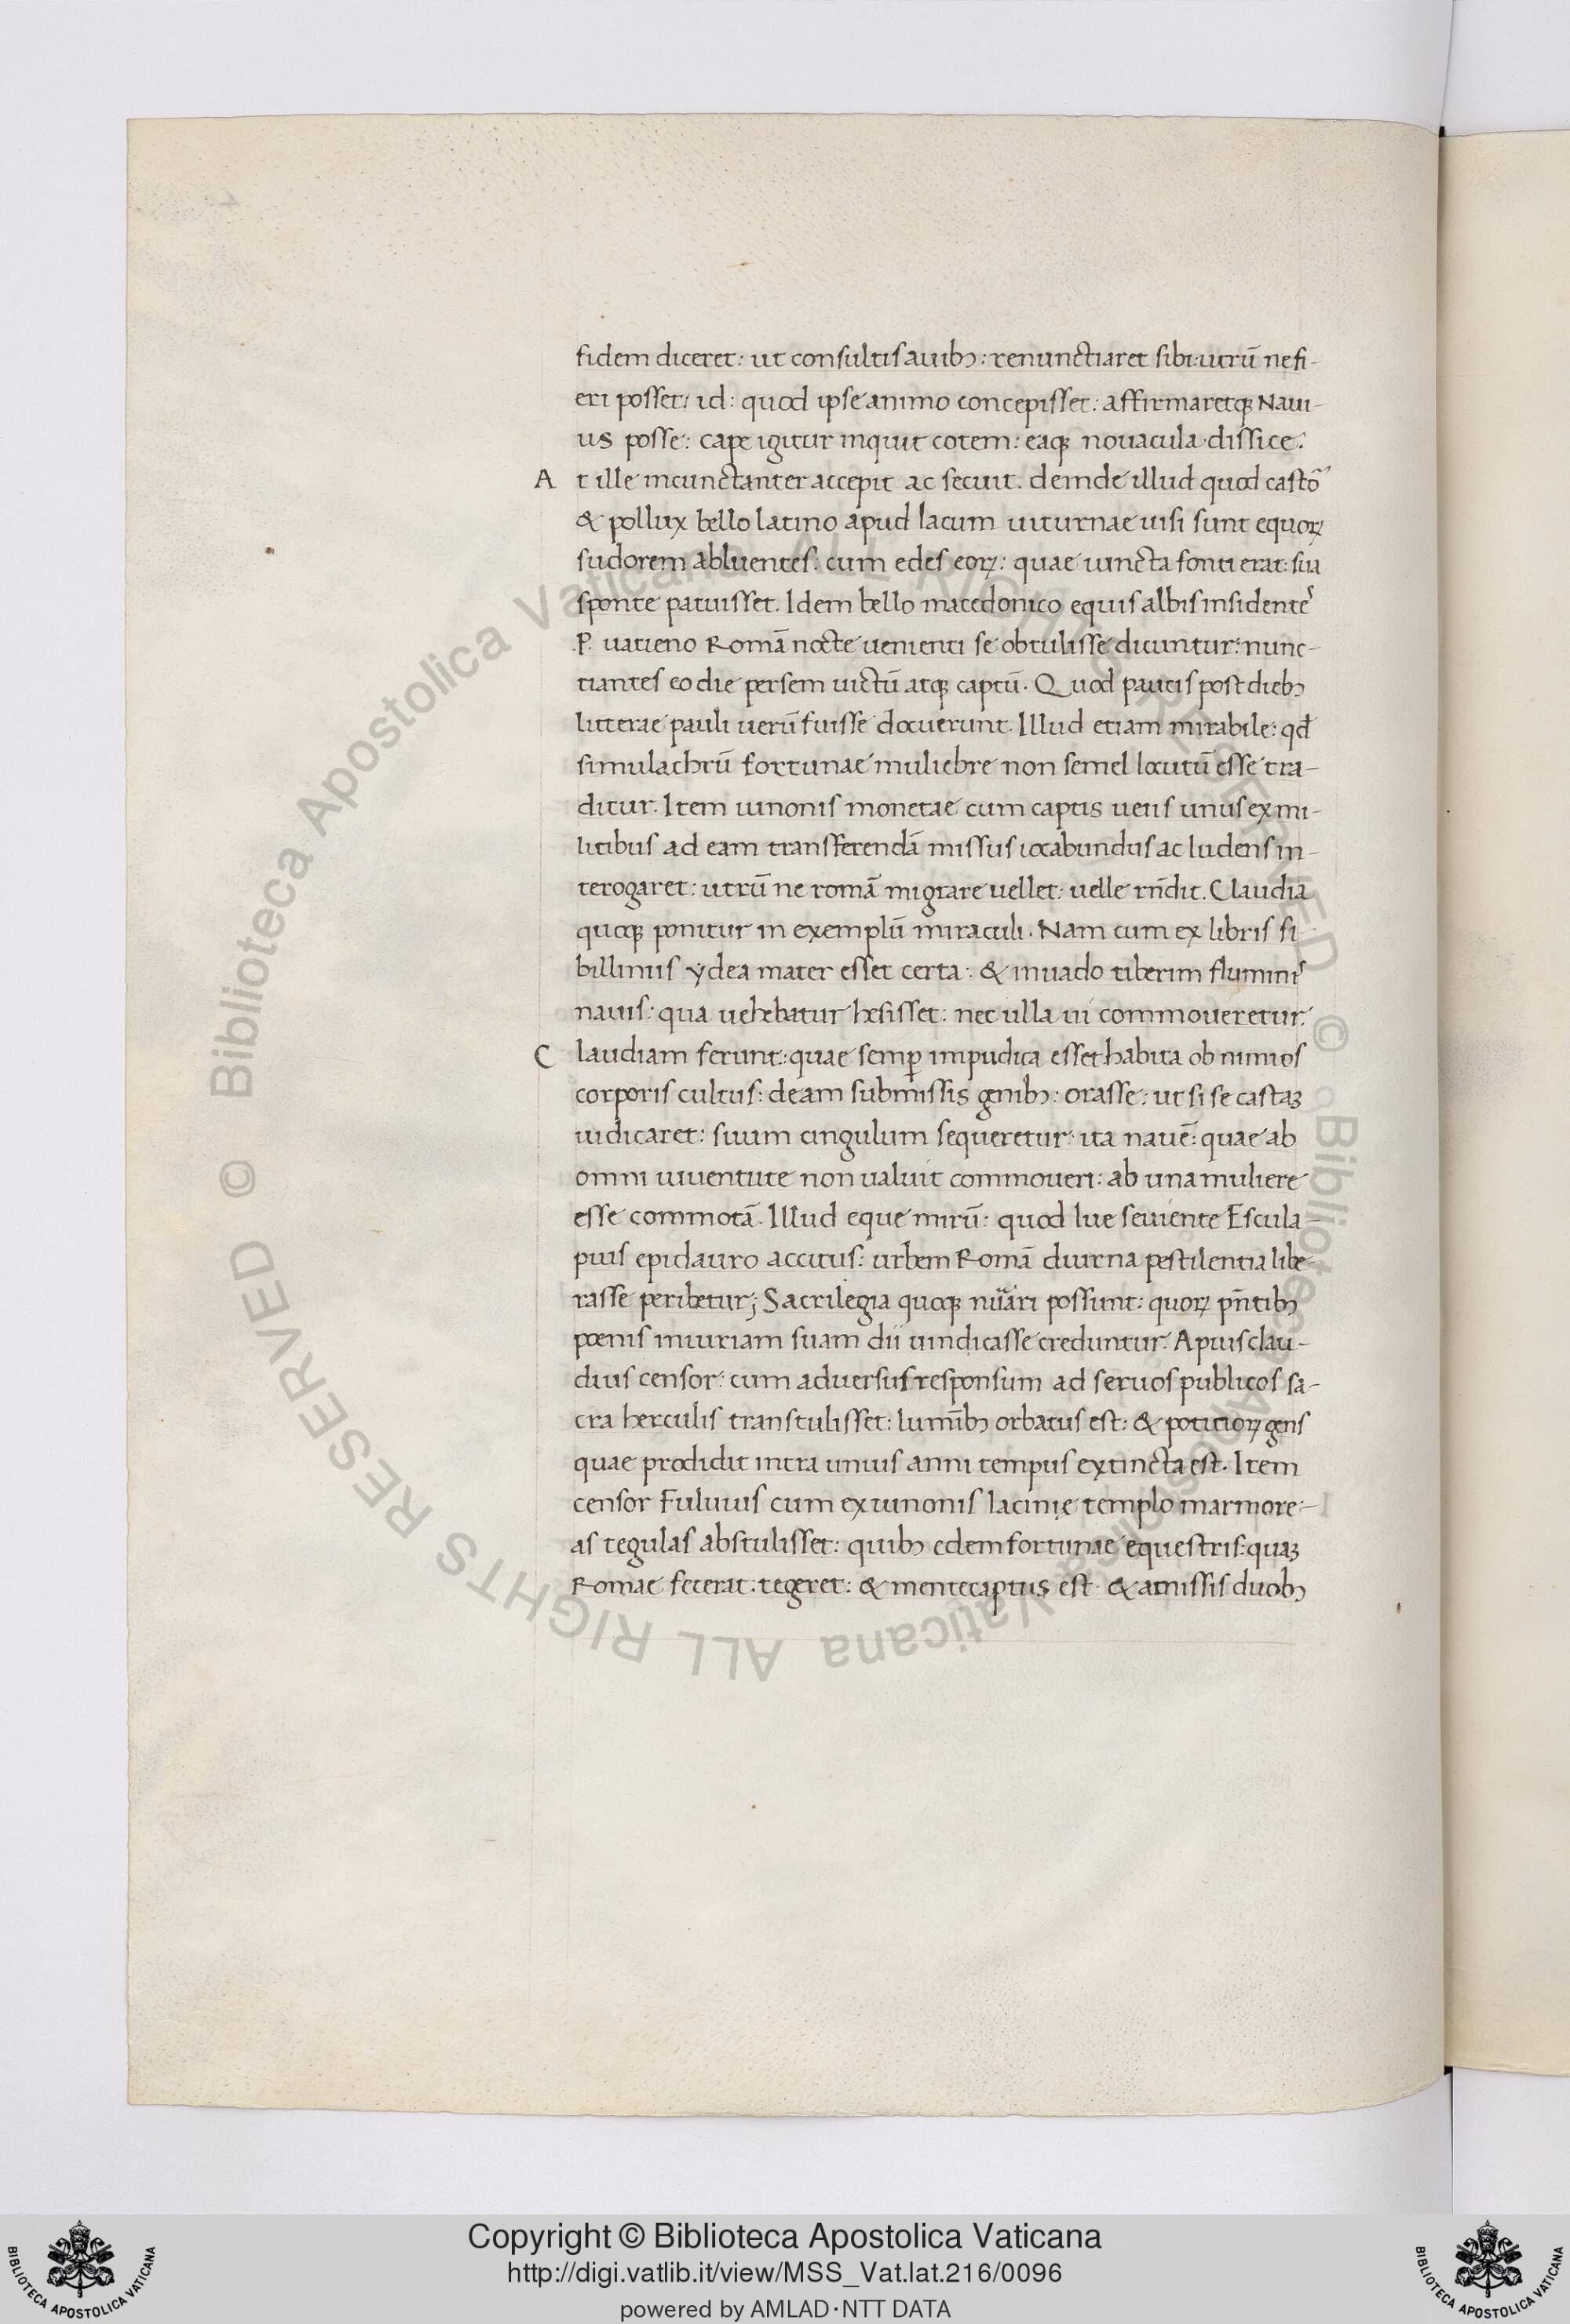 fidem diceret: ut consultis auibꝫ: renunctiaret sibi: utrū ne fi-
eri posset: id: quod ipse animo concepisset: affirmaretqꝫ Naui-
us posse: cape igitur inquit cotem: eaqꝫ nouacula dissice:
At ille incunctanter accepit ac secuit. deinde illud quod castoꝝ
& pollux bello latino apud lacum uiturnae uisi sunt equoꝝ
sudorem abluentes: cum edes eoꝝ: quae iuncta fonti erat: sua
sponte patuisset. Idem bello macedonico equis albis insidentes
.P. uatieno Romā nocte uenienti se obtulisse dicuntur: nunc-
tiantes eo die persem uictū atqꝫ captū. Quod paucis post diebꝫ
litterae pauli uerū fuisse docuerunt. Illud etiam mirabile: qđ
simulachrū fortunae muliebre non semel locutū esse tra-
ditur. Item iunonis monetae cum captis ueiis unus ex mi-
litibus ad eam transferendā missus iocabundus ac ludens in-
terogaret: utrū ne romā migrare uellet: uelle rn̄dit. Claudia
quoqꝫ ponitur in exemplū miraculi. Nam cum ex libris si
billinis ydea mater esset certa: & in uado tiberim fluminis
nauis: qua uehebatur hesisset: nec ulla ui commoueretur:
Claudiam ferunt: quae semꝑ impudica esset habita ob nimios
corporis cultus: deam submissis genibꝫ: orasse: ut si se castaꝫ
iudicaret: suum cingulum sequeretur: ita nauē: quae ab
omni iuuentute non ualuit commoueri: ab una muliere
esse commotā. Illud eque mirū: quod lue seuiente Escula-
pius epidauro accitus: urbem Romā diurna pestilentia libe-
rasse peribetur; Sacrilegia quoqꝫ nūari possunt: quoꝝ pn̄tibꝫ
poenis iniuriam suam dii uindicasse creduntur. Apius clau-
dius censor: cum aduersus responsum ad seruos publicos sa-
cra herculis transtulisset: lumībꝫ orbatus est: & poticioꝝ gens
quae prodidit intra unius anni tempus extincta est. Item
censor Fuluius cum ex iunonis lacinię templo marmore-
as tegulas abstulisset: quibꝫ edem fortunae equestris: quaꝫ
Romae fecerat: tegeret: & mente captus est & amissis duobꝫ
© Biblioteca Apostolica Vaticana ALL RIGHTS RESERVED © Biblioteca Apostolica Vaticana ALL RIGHTS RESERVED
Copyright © Biblioteca Apostolica Vaticana
http://digi.vatlib.it/view/MSS_Vat.lat.216/0096
powered by AMLAD·NTT DATA
BIBLIOTECA APOSTOLICA VATICANA
BIBLIOTECA APOSTOLICA VATICANA